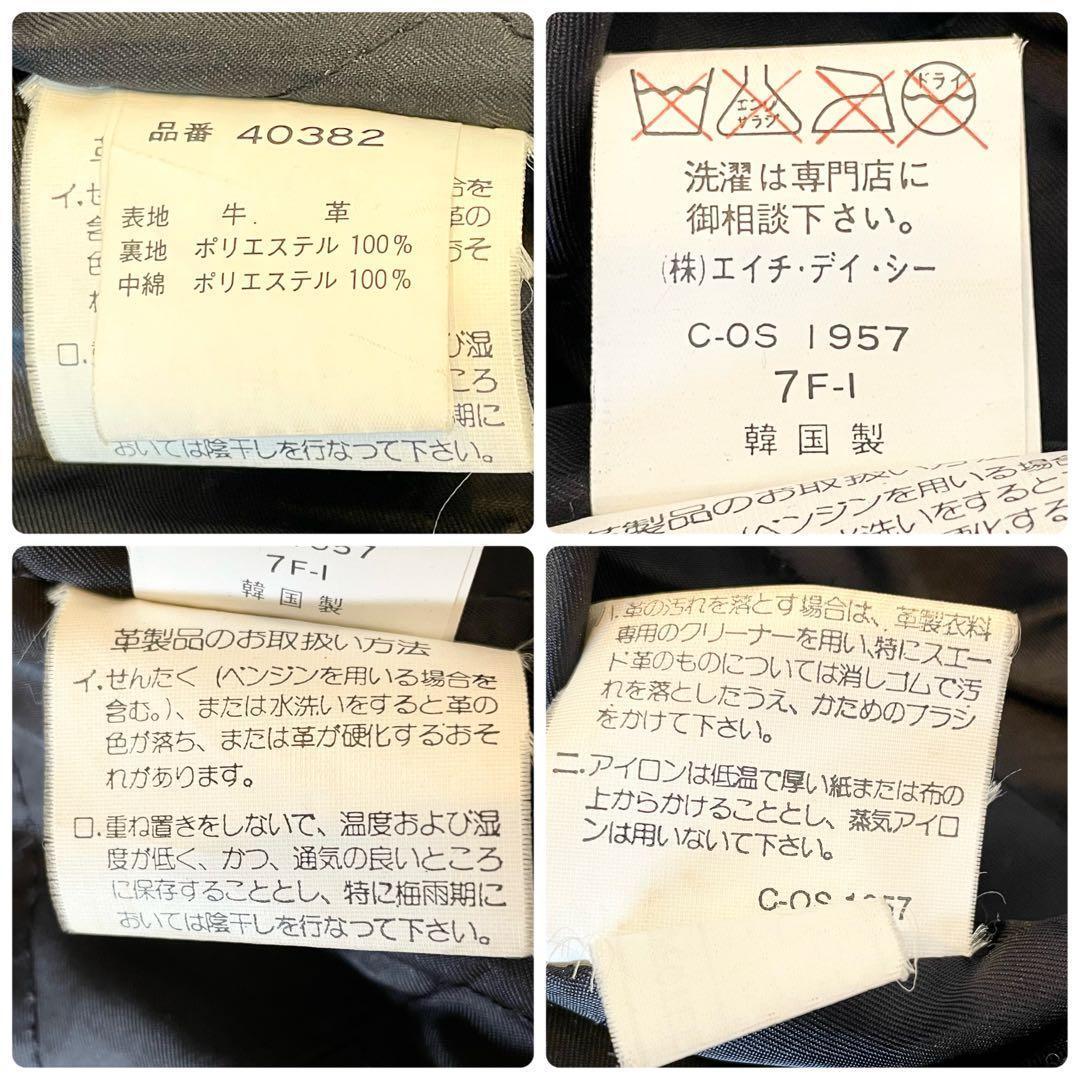 品番 40382
表地 牛. 革
裏地 ポリエステル 100%
中綿 ポリエステル 100%
イ.せ
合を
含
革の
色
おそ
ロ.
び湿
ころ
期に
おいては陰干しを行なって下さい。
エンソ
サラジ
ドライ
洗濯は専門店に
御相談下さい。
(株)エイチ・デイ・シー
C-OS 1957
7F-I
韓国製
革製品のお取扱い方
(ベンジンを用いる場合
洗いをすると
化する
957
7F-I
韓国製
革製品のお取扱い方法
イ.せんたく (ベンジンを用いる場合を
含む。)、または水洗いをすると革の
色が落ち、または革が硬化するおそ
れがあります。
ロ.重ね置きをしないで、温度および湿
度が低く、かつ、通気の良いところ
に保存することとし、特に梅雨期に
おいては陰干しを行なって下さい。
ハ.革の汚れを落とす場合は、革製衣料
専用のクリーナーを用い、特にスエー
ド革のものについては消しゴムで汚
れを落としたうえ、かためのブラシ
をかけて下さい。
ニ.アイロンは低温で厚い紙または布の
上からかけることとし、蒸気アイロ
ンは用いないで下さい。
C-OS 1957